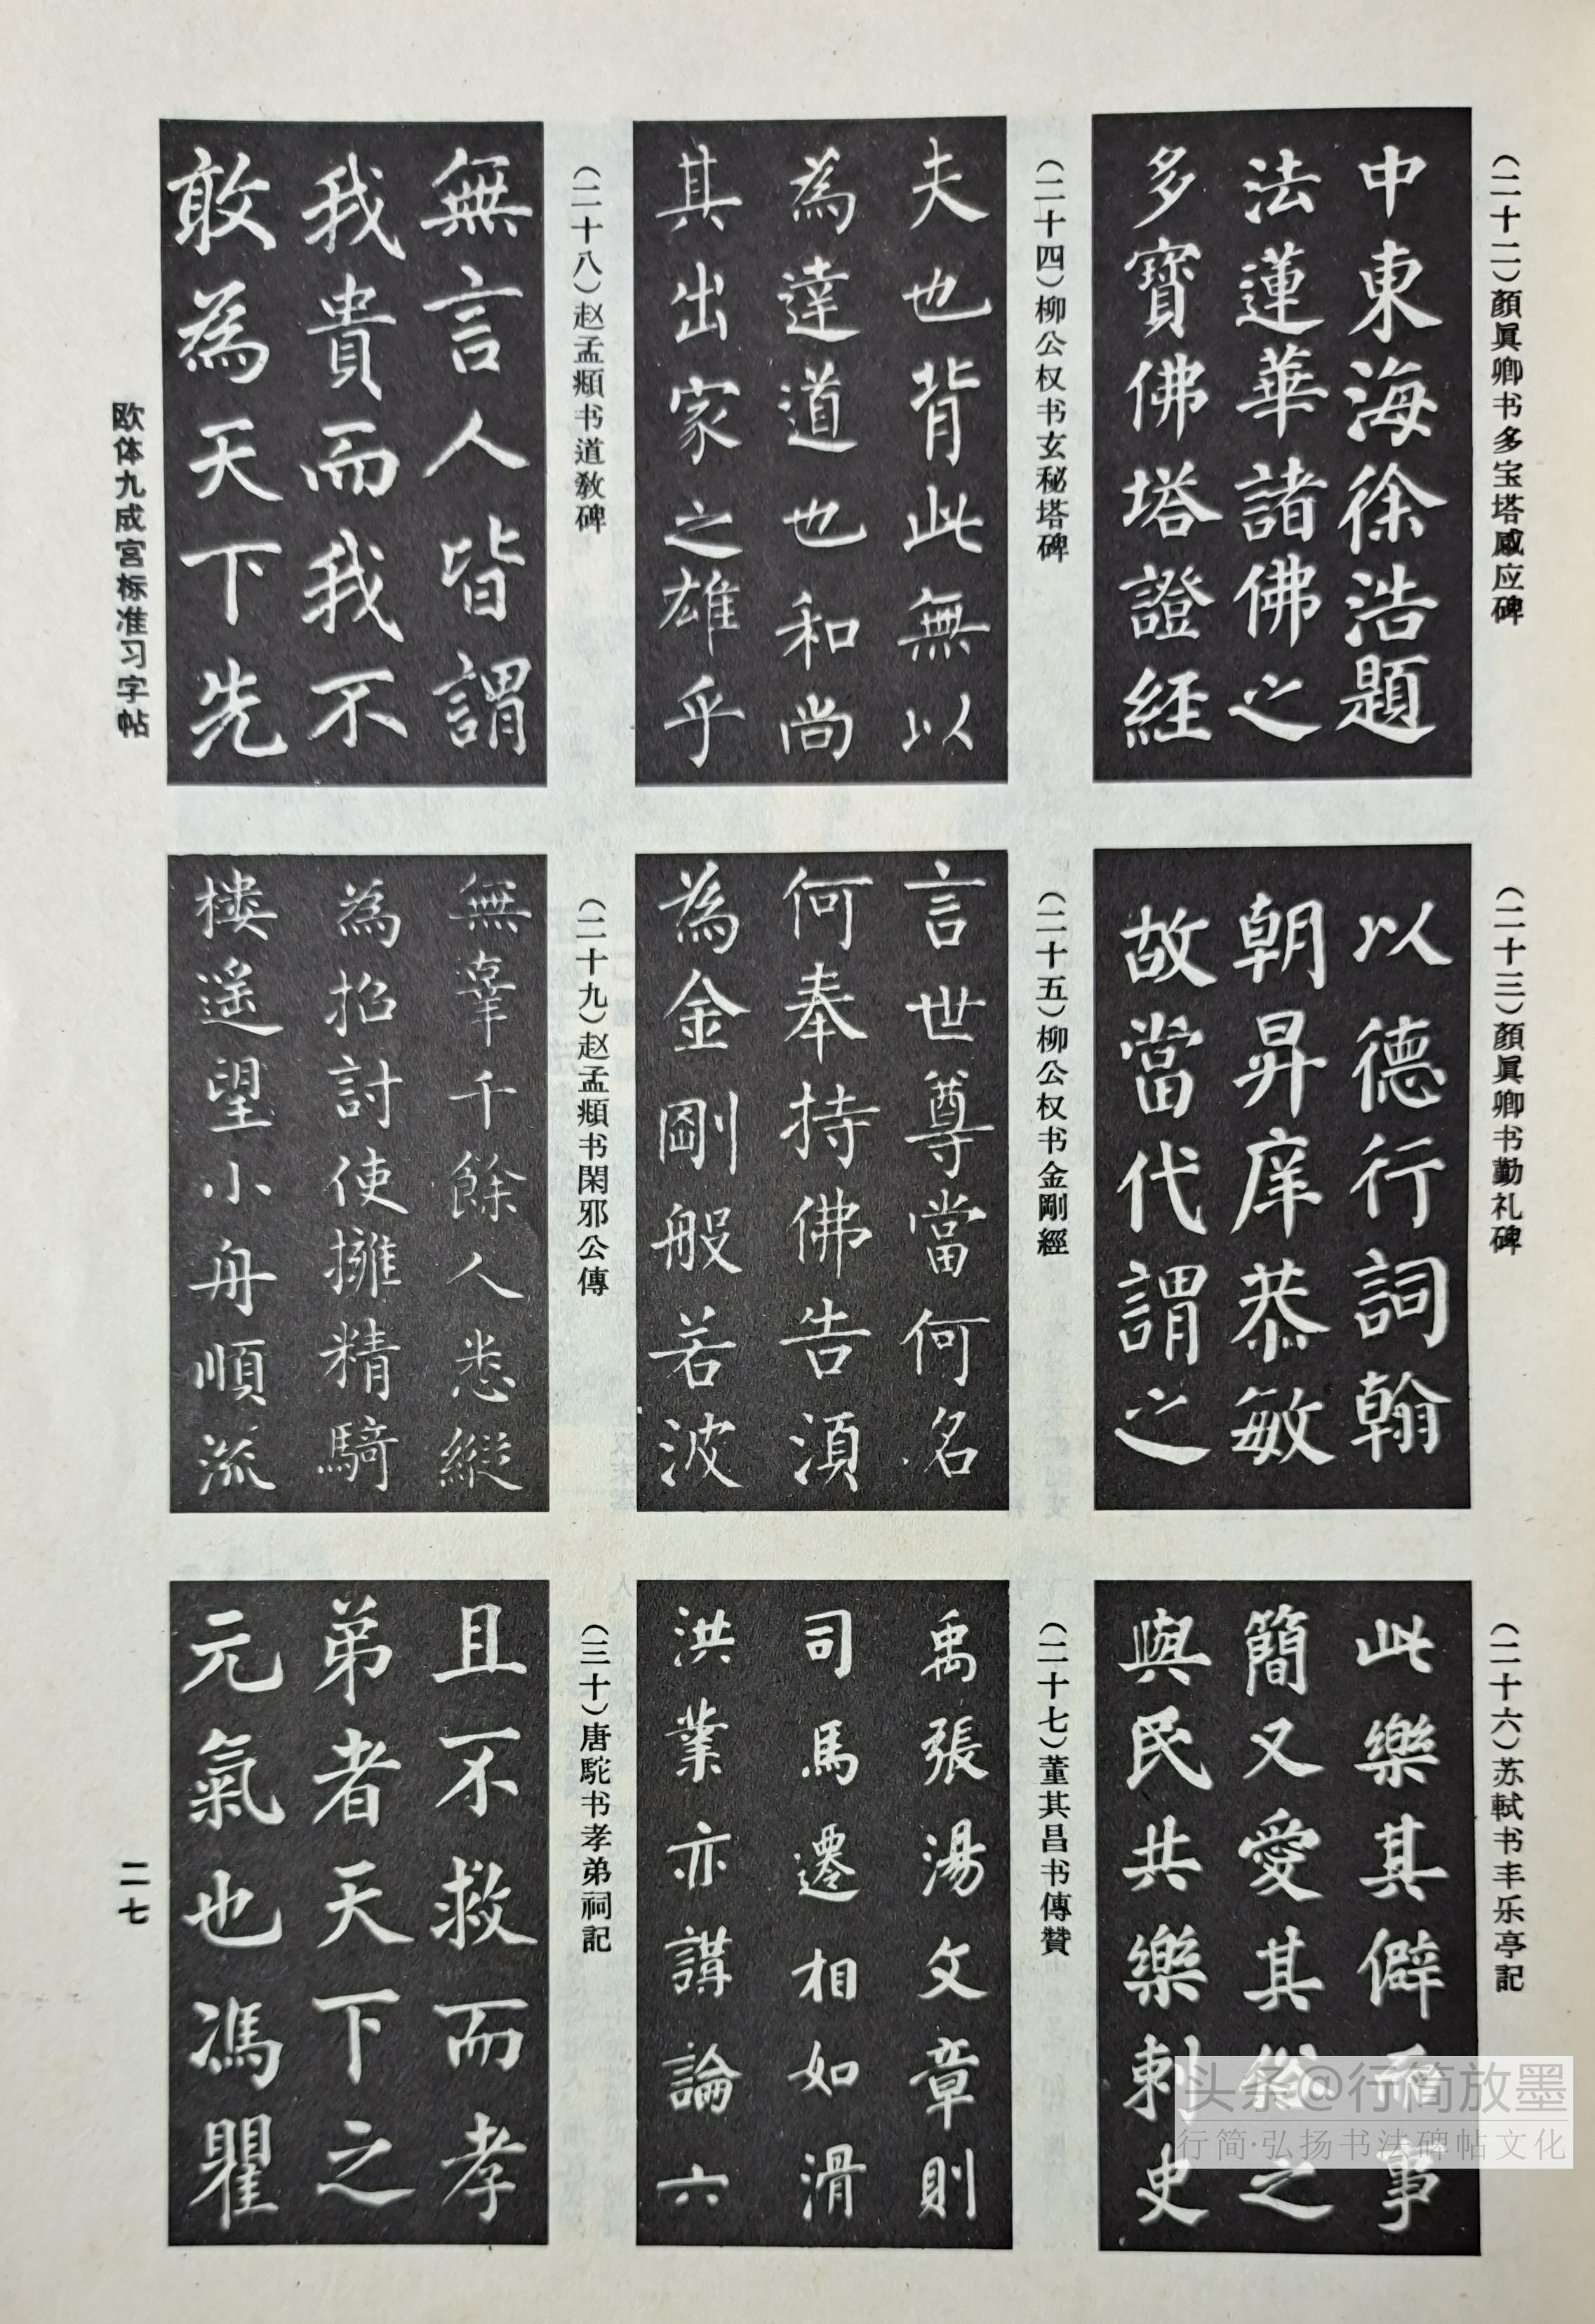 (二十二)顏眞卿书多宝塔感应碑
中東海徐浩題
法蓮華諸佛之
多寶佛塔證經
(二十三)顏眞卿书勤礼碑
以德行詞翰
朝昇庠恭敏
故當代謂之
(二十四)柳公权书玄秘塔碑
夫也背此無以
為達道也和尚
其出家之雄乎
(二十五)柳公权书金剛經
言世尊當何名
何奉持佛告須
為金剛般若波
(二十六)苏軾书丰乐亭記
此樂其僻而事
簡又愛其俗之
與民共樂刺史
(二十七)董其昌书傳贊
禹張湯文章則
司馬遷相如滑
洪業亦講論六
(二十八)赵孟頫书道教碑
無言人皆謂
我貴而我不
敢為天下先
(二十九)赵孟頫书閑邪公傳
無辜千餘人悉縱
為招討使擁精騎
樓遥望小舟順流
(三十)唐駝书孝弟祠記
且不救而孝
弟者天下之
元氣也馮瞿
欧体九成宫标准习字帖
二七
头条@行简放墨
行简·弘扬书法碑帖文化